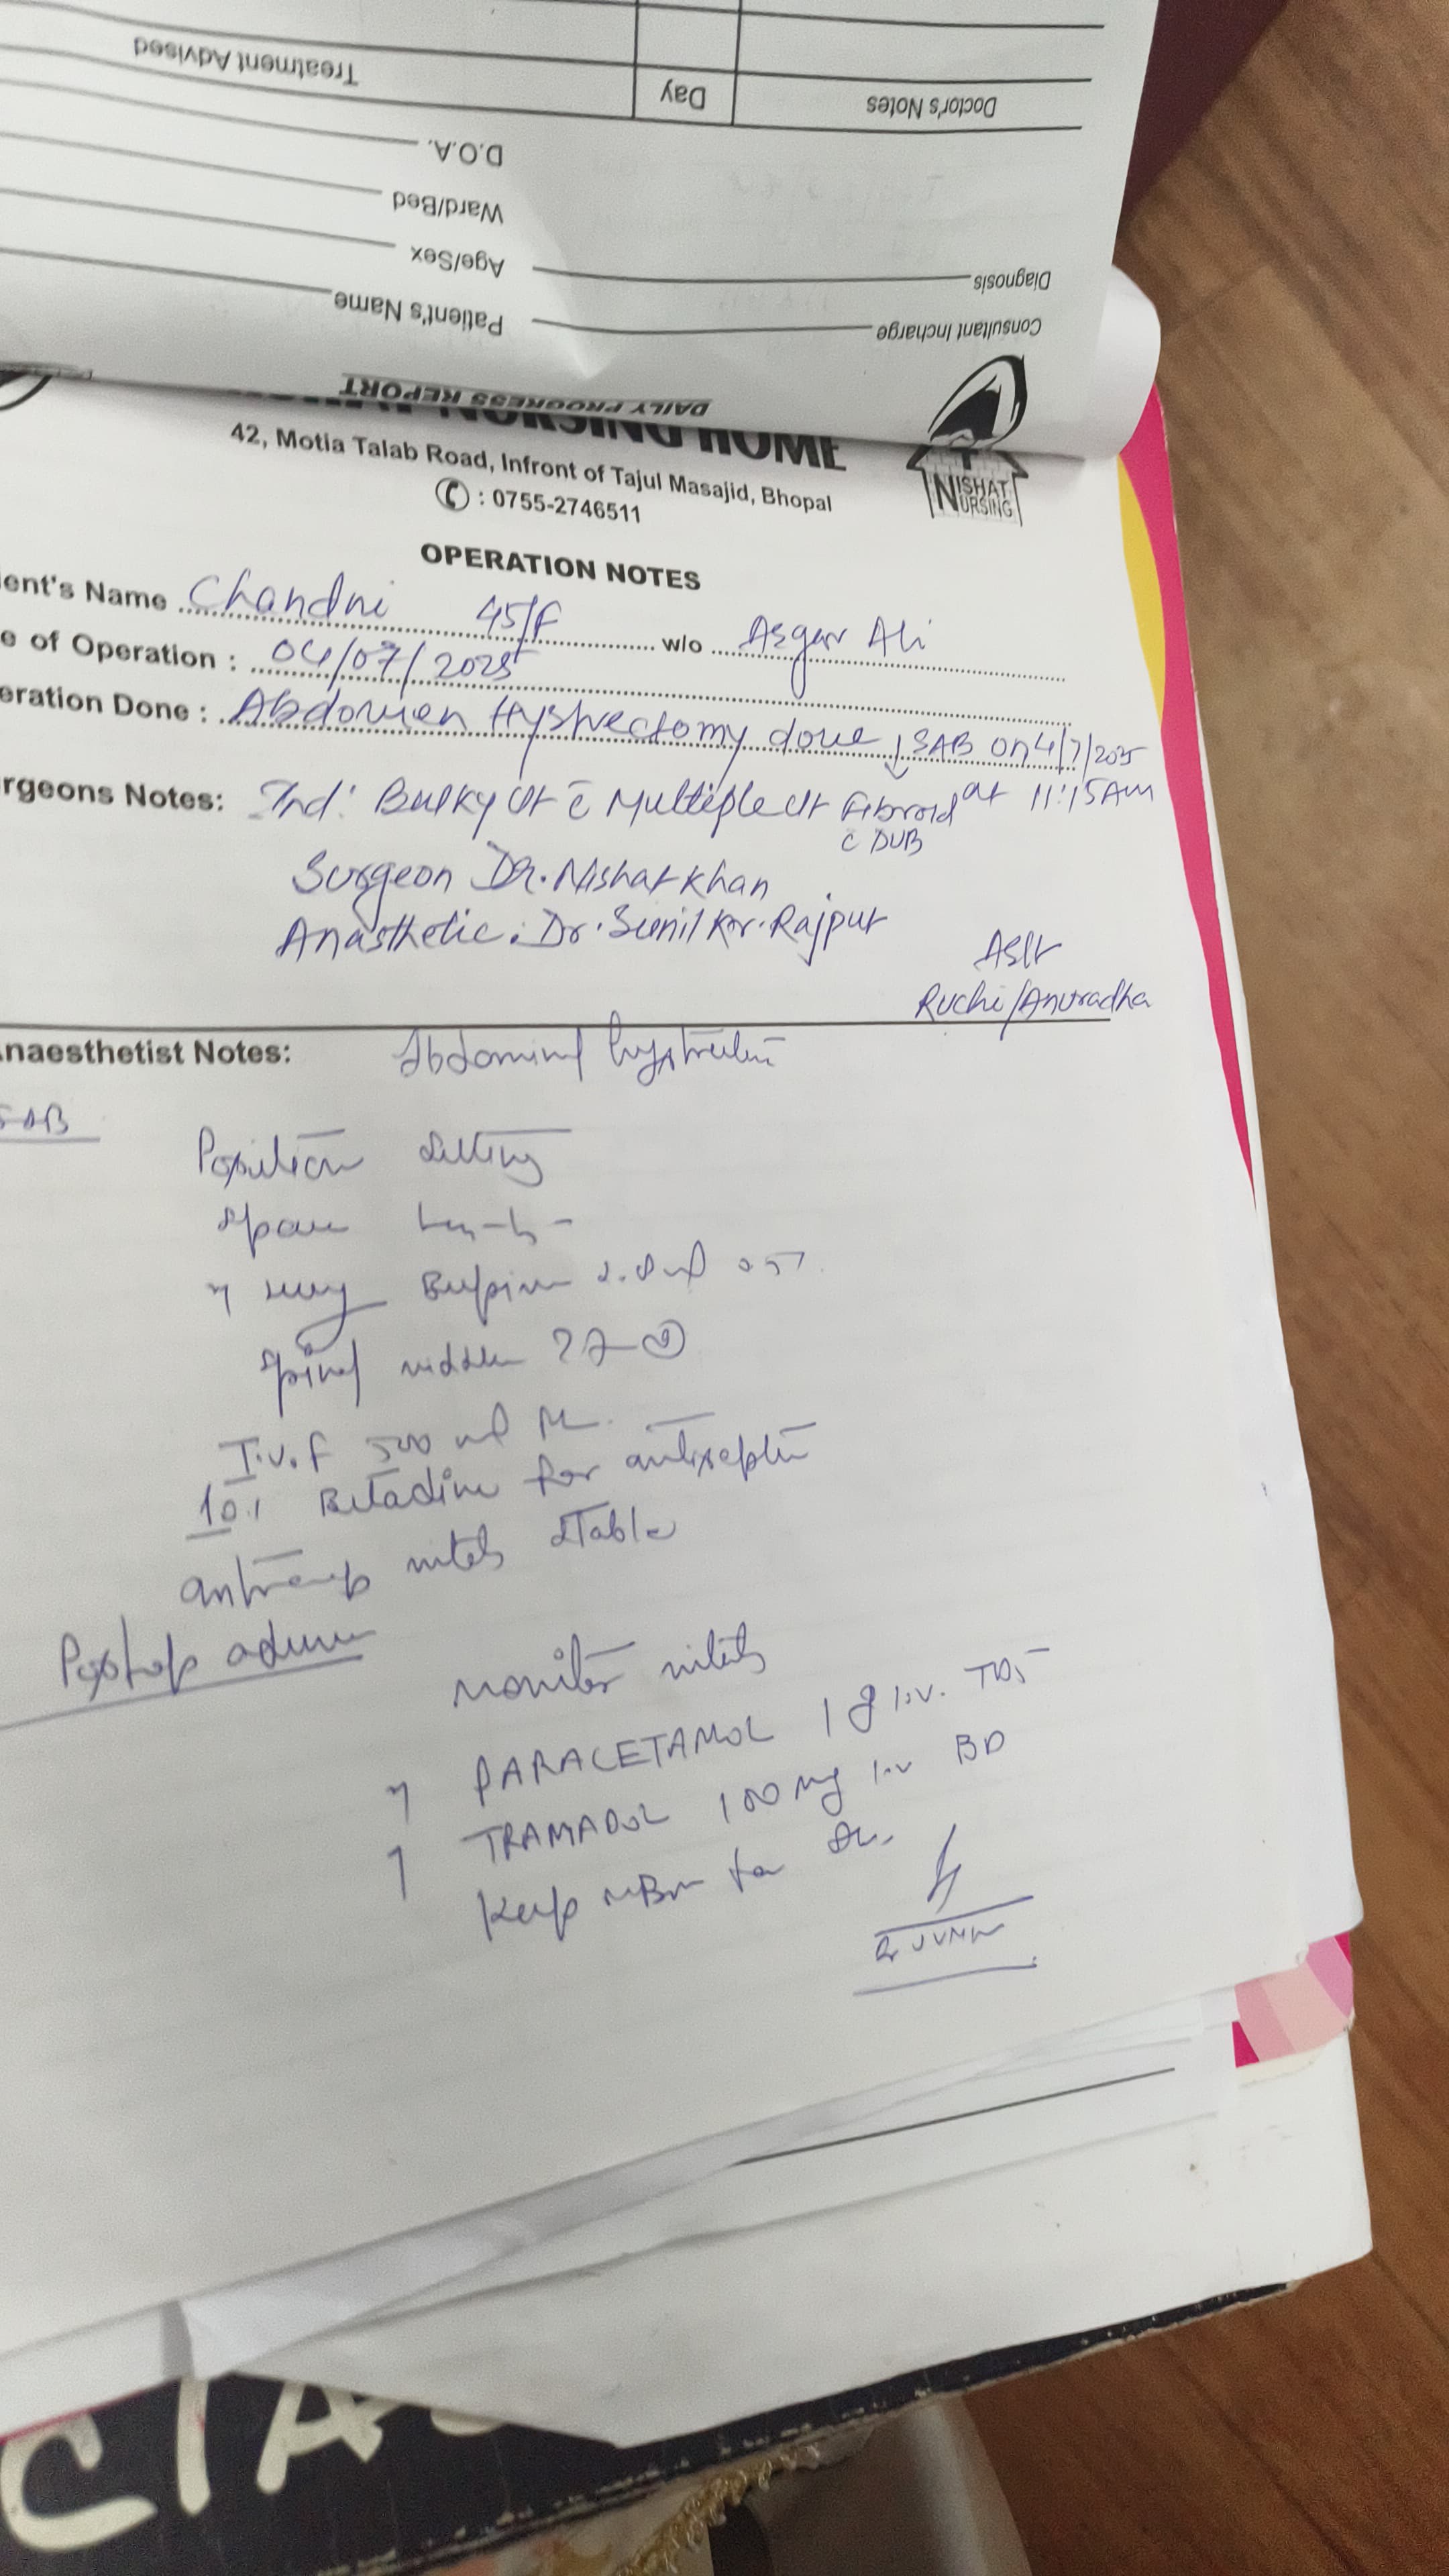 Treatment Advised
Day
Doctor's Notes
D.O.A.
Ward/Bed
Age/Sex
Diagnosis
Patient's Name
Consultant Incharge
DAILY PROGRESS REPORT
NURSING HOME
42, Motia Talab Road, Infront of Tajul Masajid, Bhopal
: 0755-2746511
NISHAT NURSING
OPERATION NOTES
ient's Name Chandni 45/F w/o Asgar Ali
e of Operation : 04/07/2025
eration Done : Abdomen Hystrectomy done ↓ SAB on 4/7/2025
rgeons Notes: Ind: Bulky Ut c̄ Multiple Ut Fibroid at 11:15AM
c̄ DUB
Surgeon Dr. Nishat Khan
Anasthetic: Dr. Sunil Kr. Rajput
Asst
Ruchi/Anuradha
naesthetist Notes: Abdominal
SAB
Position sitting
Space
2.8 ml 0.5%
Spinal
I.V.F 500 ml
10% Betadine for
vitals stable
Postop
Monitor vitals
PARACETAMOL 1 g i.v. TDS
TRAMADOL 100 mg i.v BD
Keep NBM for
CIA